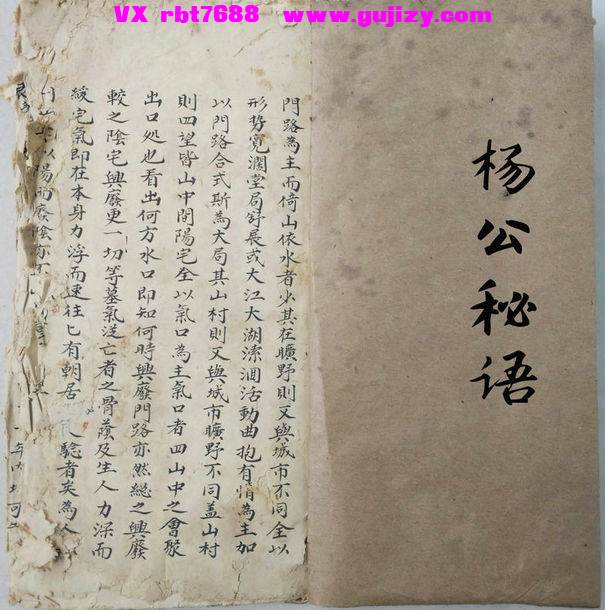 VX rbt7688 www.gujizy.com
杨公秘语
門路為主而倚山依水者少其在曠野則又與城市不同全以
形势寬濶堂局舒展或大江大湖潆洄活動曲抱有情為主加
以門路合式斯為大局其山村則又與城市曠野不同盖山村
則四望皆山中間陽宅全以氣口為主氣口者四山中之會聚
出口処也看出何方水口即知何時興廢門路亦然緫之興廢
較之陰宅興廢更一切等墓氣泛亡者之骨蔭及生人力深而
緩宅氣即在本身力浮而速往七有朝居
驗者矣為人
以陽而廢陰亦